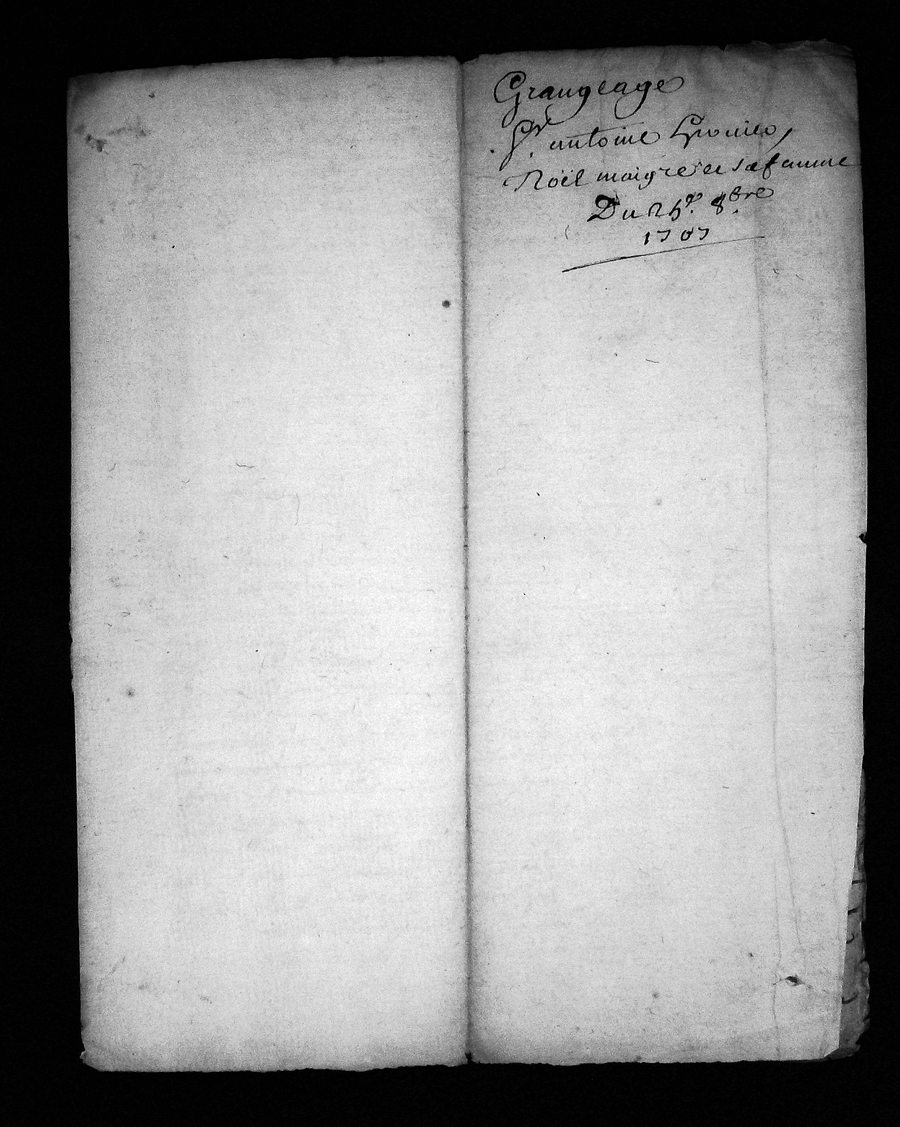 Grangeage
Sr. antoine
Noël maigre et sa famme
Du 25e. 8.bre
1707